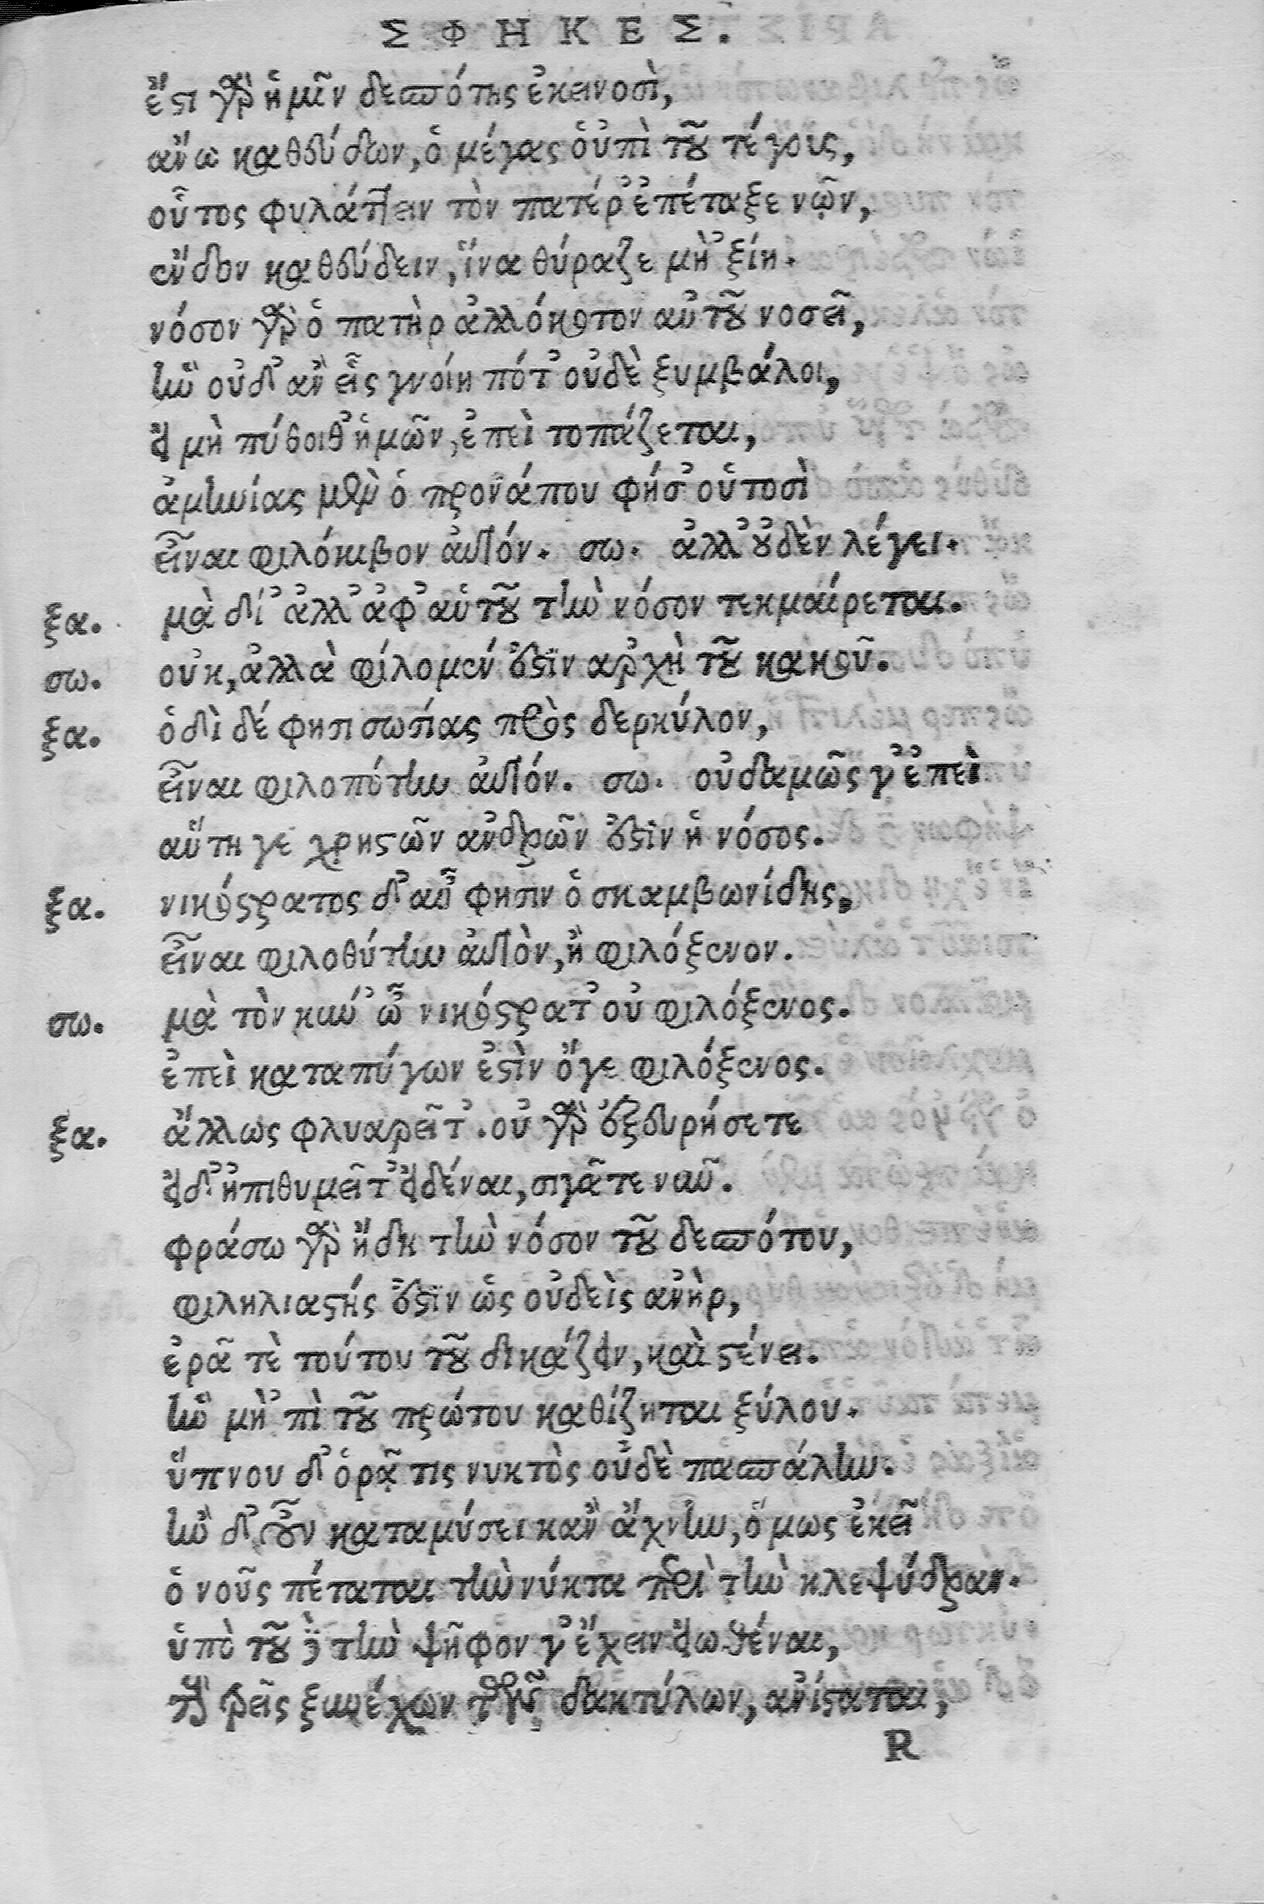 ΣΦΗΚΕΣ.
ἔστι γὰρ ἡμῖν δεσπότης ἐκεινοσὶ,
ἄνω καθεύδων, ὁ μέγας οὑπὶ τοῦ τέγους,
οὗτος φυλάττειν τὸν πατέρ' ἐπέταξε νῷν,
ἔνδον καθεύδειν, ἵνα θύραζε μὴ 'ξίη.
νόσον γὰρ ὁ πατὴρ ἀλλόκοτον αὐτοῦ νοσεῖ,
ἣν οὐδ' ἂν εἷς γνοίη πότ' οὐδὲ ξυμβάλοι,
εἰ μὴ πύθοιθ' ἡμῶν, ἐπεὶ τοπάζεται,
ἀμυνίας μὲν ὁ προνάπου φήσ' οὑτοσὶ
εἶναι φιλόκυβον αὐτόν. σω. ἀλλ' οὐδὲν λέγει.
ξα. μὰ δί' ἀλλ' ἀφ' αὑτοῦ τὴν νόσον τεκμαίρεται.
σω. οὐκ, ἀλλὰ φίλο μέν ἐστιν ἀρχὴ τοῦ κακοῦ.
ξα. ὁδὶ δέ φησι σωσίας πρὸς δερκύλον,
εἶναι φιλοπότην αὐτόν. σω. οὐδαμῶς γ' ἐπεὶ
αὕτη γε χρηστῶν ἀνδρῶν ἐστὶν ἡ νόσος.
ξα. νικόστρατος δ' αὖ φησὶν ὁ σκαμβωνίδης,
εἶναι φιλοθύτην αὐτὸν, ἢ φιλόξενον.
σω. μὰ τὸν κύν' ὦ νικόστρατ' οὐ φιλόξενος.
ἐπεὶ καταπύγων ἐστὶν ὅγε φιλόξενος.
ξα. ἄλλως φλυαρεῖτ'. οὐ γὰρ ἐξευρήσετε
εἰ δ' ἠπιθυμεῖτ' εἰδέναι, σιγᾶτε νῦν.
φράσω γὰρ ἤδη τὴν νόσον τοῦ δεσπότου,
φιληλιαστής ἐστὶν ὡς οὐδεὶς ἀνὴρ,
ἐρᾶ τὲ τούτου τοῦ δικάζειν, καὶ στένει.
ἢν μὴ 'πὶ τοῦ πρώτου καθίζηται ξύλου.
ὕπνου δ' ὁρᾷ τις νυκτὸς οὐδὲ πασπάλην.
ἢν δ' οὖν καταμύσει κἂν ἄχνην, ὅμως ἐκεῖ
ὁ νοῦς πέταται τὴν νύκτα περὶ τὴν κλεψύδραν.
ὑπὸ τοῦ δὲ τὴν ψῆφον γ' ἔχειν εἰωθέναι,
τοὺς τρεῖς ξυνέχων τῶν δακτύλων, ἀνίσταται,
R